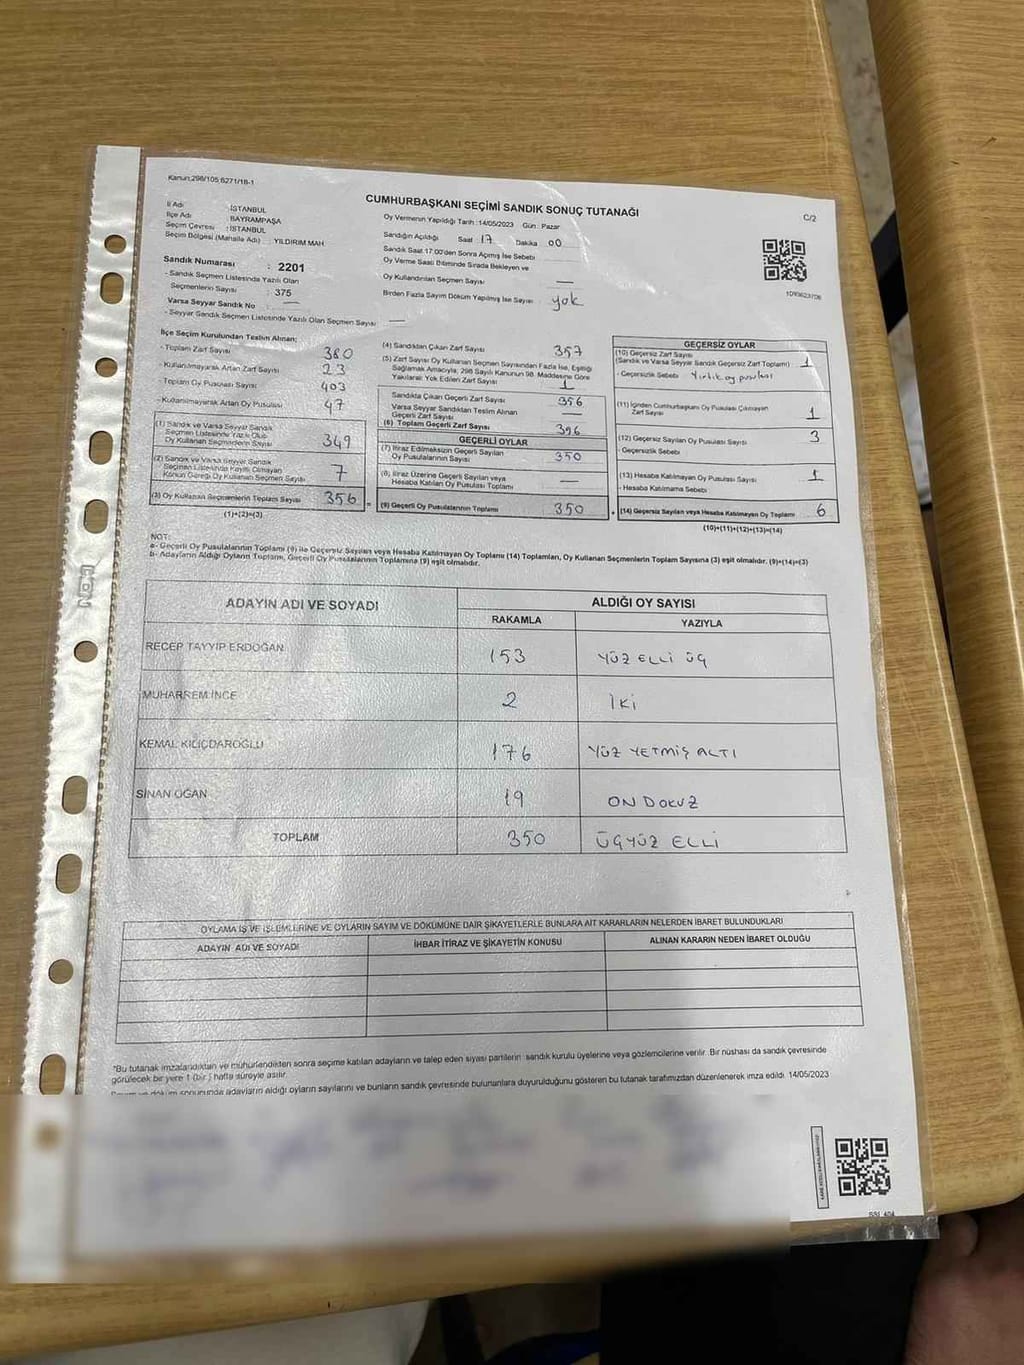 Kanun:298/105;6271/18-1
CUMHURBAŞKANI SEÇİMİ SANDIK SONUÇ TUTANAĞI
C/2
İl Adı : İSTANBUL
İlçe Adı : BAYRAMPAŞA
Seçim Çevresi : İSTANBUL
Seçim Bölgesi (Mahalle Adı) : YILDIRIM MAH
Sandık Numarası : 2201
- Sandık Seçmen Listesinde Yazılı Olan
Seçmenlerin Sayısı : 375
Varsa Seyyar Sandık No : —
- Seyyar Sandık Seçmen Listesinde Yazılı Olan Seçmen Sayısı : —
Oy Vermenin Yapıldığı Tarih : 14/05/2023 Gün : Pazar
Sandığın Açıldığı Saat : 17 Dakika : 00
Sandık Saat 17.00'den Sonra Açılmış İse Sebebi
Oy Verme Saati Bitiminde Sırada Bekleyen ve
Oy Kullandırılan Seçmen Sayısı : —
Birden Fazla Sayım Döküm Yapılmış İse Sayısı : yok
İlçe Seçim Kurulundan Teslim Alınan;
- Toplam Zarf Sayısı : 380
- Kullanılmayarak Artan Zarf Sayısı : 23
- Toplam Oy Pusulası Sayısı : 403
- Kullanılmayarak Artan Oy Pusulası : 47
(1) Sandık ve Varsa Seyyar Sandık
Seçmen Listesinde Yazılı Olup
Oy Kullanan Seçmenlerin Sayısı 349
(2) Sandık ve Varsa Seyyar Sandık
Seçmen Listesinde Kayıtlı Olmayan
Kanun Gereği Oy Kullanan Seçmen Sayısı 7
(3) Oy Kullanan Seçmenlerin Toplam Sayısı 356
(1)+(2)=(3)
(4) Sandıktan Çıkan Zarf Sayısı : 357
(5) Zarf Sayısı Oy Kullanan Seçmen Sayısından Fazla İse, Eşitliği
Sağlamak Amacıyla, 298 Sayılı Kanunun 98. Maddesine Göre
Yakılarak Yok Edilen Zarf Sayısı : 1
Sandıkta Çıkan Geçerli Zarf Sayısı : 356
Varsa Seyyar Sandıktan Teslim Alınan
Geçerli Zarf Sayısı : —
(6) Toplam Geçerli Zarf Sayısı : 356
GEÇERLİ OYLAR
(7) İtiraz Edilmeksizin Geçerli Sayılan
Oy Pusulalarının Sayısı : 350
(8) İtiraz Üzerine Geçerli Sayılan veya
Hesaba Katılan Oy Pusulası Toplamı : —
(9) Geçerli Oy Pusulalarının Toplamı : 350
GEÇERSİZ OYLAR
(10) Geçersiz Zarf Sayısı
(Sandık ve Varsa Seyyar Sandık Geçersiz Zarf Toplamı) : 1
- Geçersizlik Sebebi : Yırtık oy pusulası
(11) İçinden Cumhurbaşkanı Oy Pusulası Çıkmayan
Zarf Sayısı : 1
(12) Geçersiz Sayılan Oy Pusulası Sayısı : 3
- Geçersizlik Sebebi :
(13) Hesaba Katılmayan Oy Pusulası Sayısı : 1
- Hesaba Katılmama Sebebi
(14) Geçersiz Sayılan veya Hesaba Katılmayan Oy Toplamı : 6
(10)+(11)+(12)+(13)=(14)
NOT:
a- Geçerli Oy Pusulalarının Toplamı (9) ile Geçersiz Sayılan veya Hesaba Katılmayan Oy Toplamı (14) Toplamları, Oy Kullanan Seçmenlerin Toplam Sayısına (3) eşit olmalıdır. (9)+(14)=(3)
b- Adayların Aldığı Oyların Toplamı, Geçerli Oy Pusulalarının Toplamına (9) eşit olmalıdır.
ADAYIN ADI VE SOYADI ALDIĞI OY SAYISI
RAKAMLA YAZIYLA
RECEP TAYYİP ERDOĞAN 153 YÜZ ELLİ ÜÇ
MUHARREM İNCE 2 İKİ
KEMAL KILIÇDAROĞLU 176 YÜZ YETMİŞ ALTI
SİNAN OĞAN 19 ON DOKUZ
TOPLAM 350 ÜÇYÜZ ELLİ
OYLAMA İŞ VE İŞLEMLERİNE VE OYLARIN SAYIM VE DÖKÜMÜNE DAİR ŞİKAYETLERLE BUNLARA AİT KARARLARIN NELERDEN İBARET BULUNDUKLARI
ADAYIN ADI VE SOYADI İHBAR İTİRAZ VE ŞİKAYETİN KONUSU ALINAN KARARIN NEDEN İBARET OLDUĞU
*Bu tutanak imzalandıktan ve mühürlendikten sonra seçime katılan adayların ve talep eden siyasi partilerin sandık kurulu üyelerine veya gözlemcilerine verilir. Bir nüshası da sandık çevresinde
görülecek bir yere 1 (bir) hafta süreyle asılır.
Sayım ve döküm sonucunda adayların aldığı oyların sayılarını ve bunların sandık çevresinde bulunanlara duyurulduğunu gösteren bu tutanak tarafımızdan düzenlenerek imza edildi. 14/05/2023